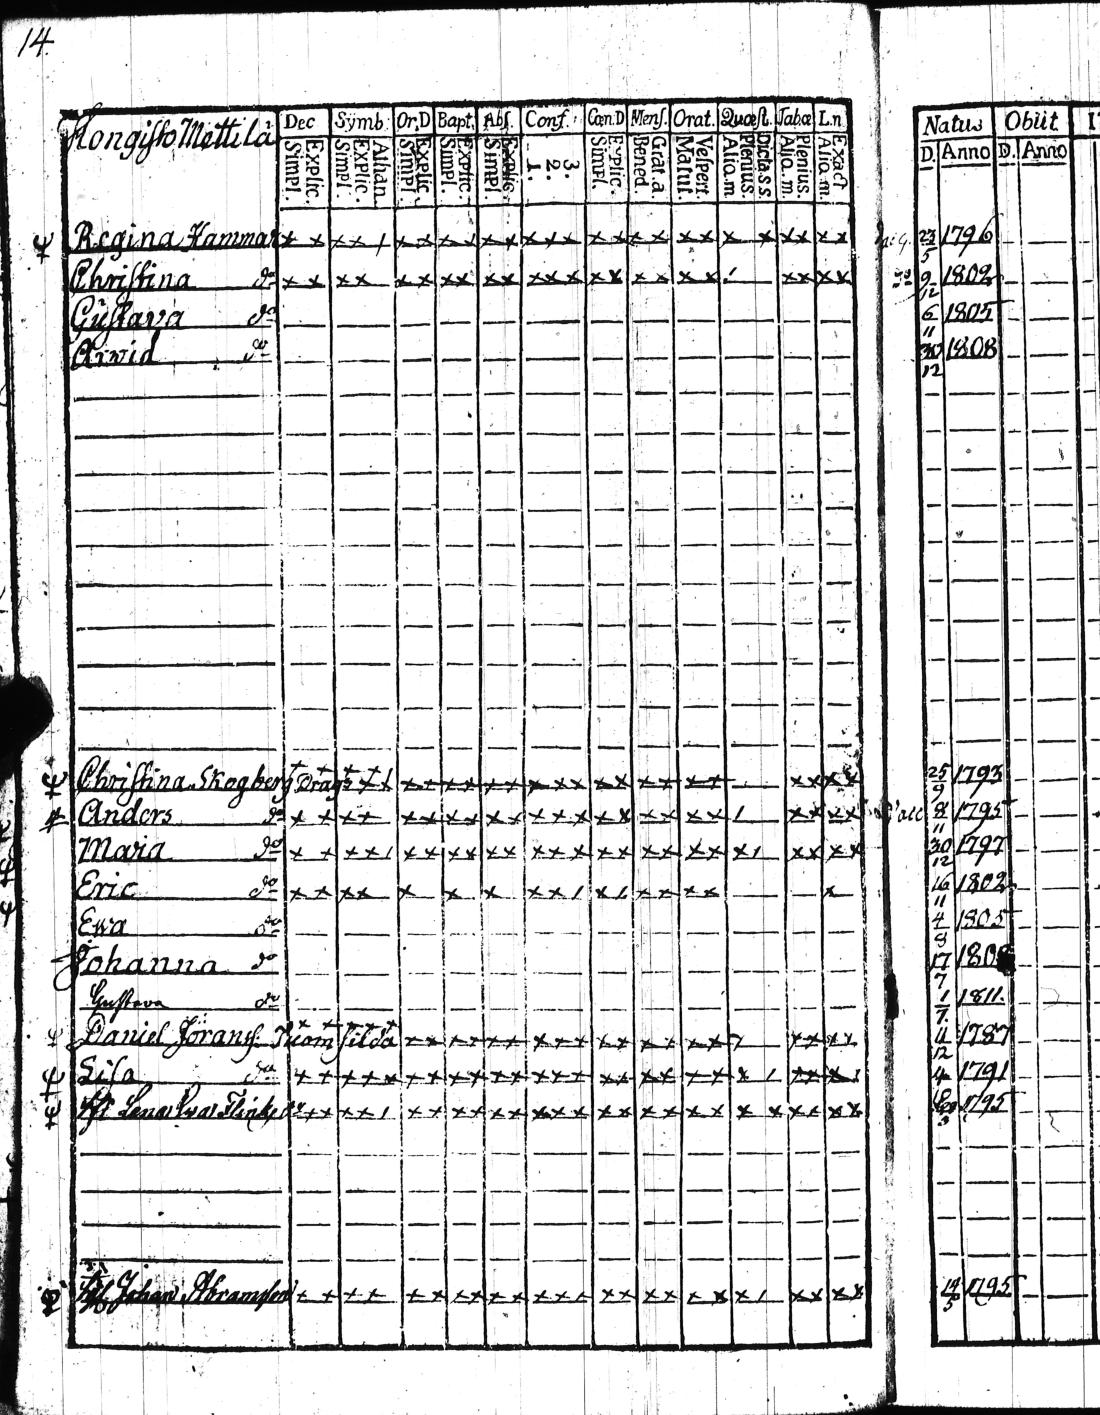 14.
Kongisto Mettilä Dec Symb: Or.D Bapt. Abs. Conf: Cœn.D Mens. Orat. Quæst. Tabæ L.n. Natus Obiit
Simpl. Explic. Simpl. Explic. Athan. Simpl. Explic. Simpl. Explic. Simpl. Explic. 1. 2. 3. Simpl. Explic. Bened. Grat.a. Matut. Vespert. Alio.m Plenius Dictass. Alio.m Plenius. Alio.m. Exact D. Anno D. Anno
Regina Hammar x x x x / x x x x x x x x x x x x x x x x x x x x x 23/5 1796
Christina do x x x x x x x x x x x x x x x x x x x / x x x x 9/12 1802
Gustava do 6/11 1805
Arwid do 30/12 1808
Christina Skogberg Drags 25/9 1793
Anders do x x x x x x x x x x x x x x x x x x x / x x x x 8/11 1795
Maria do x x x x / x x x x x x x x x x x x x x x x / x x x x 30/12 1797
Eric do x x x x x x x x x / x / x x x x x 16/11 1802
Ewa do 4/8 1805
Johanna do 17/7 1808
Gustava do 1/7 1811.
Daniel Jörans. 11/12 1787
Lisa do 4 1791
Lena 1795
Johan Abramsson x x x x x x x x x x x x / x x x x x x x / x x x x 14/5 1795